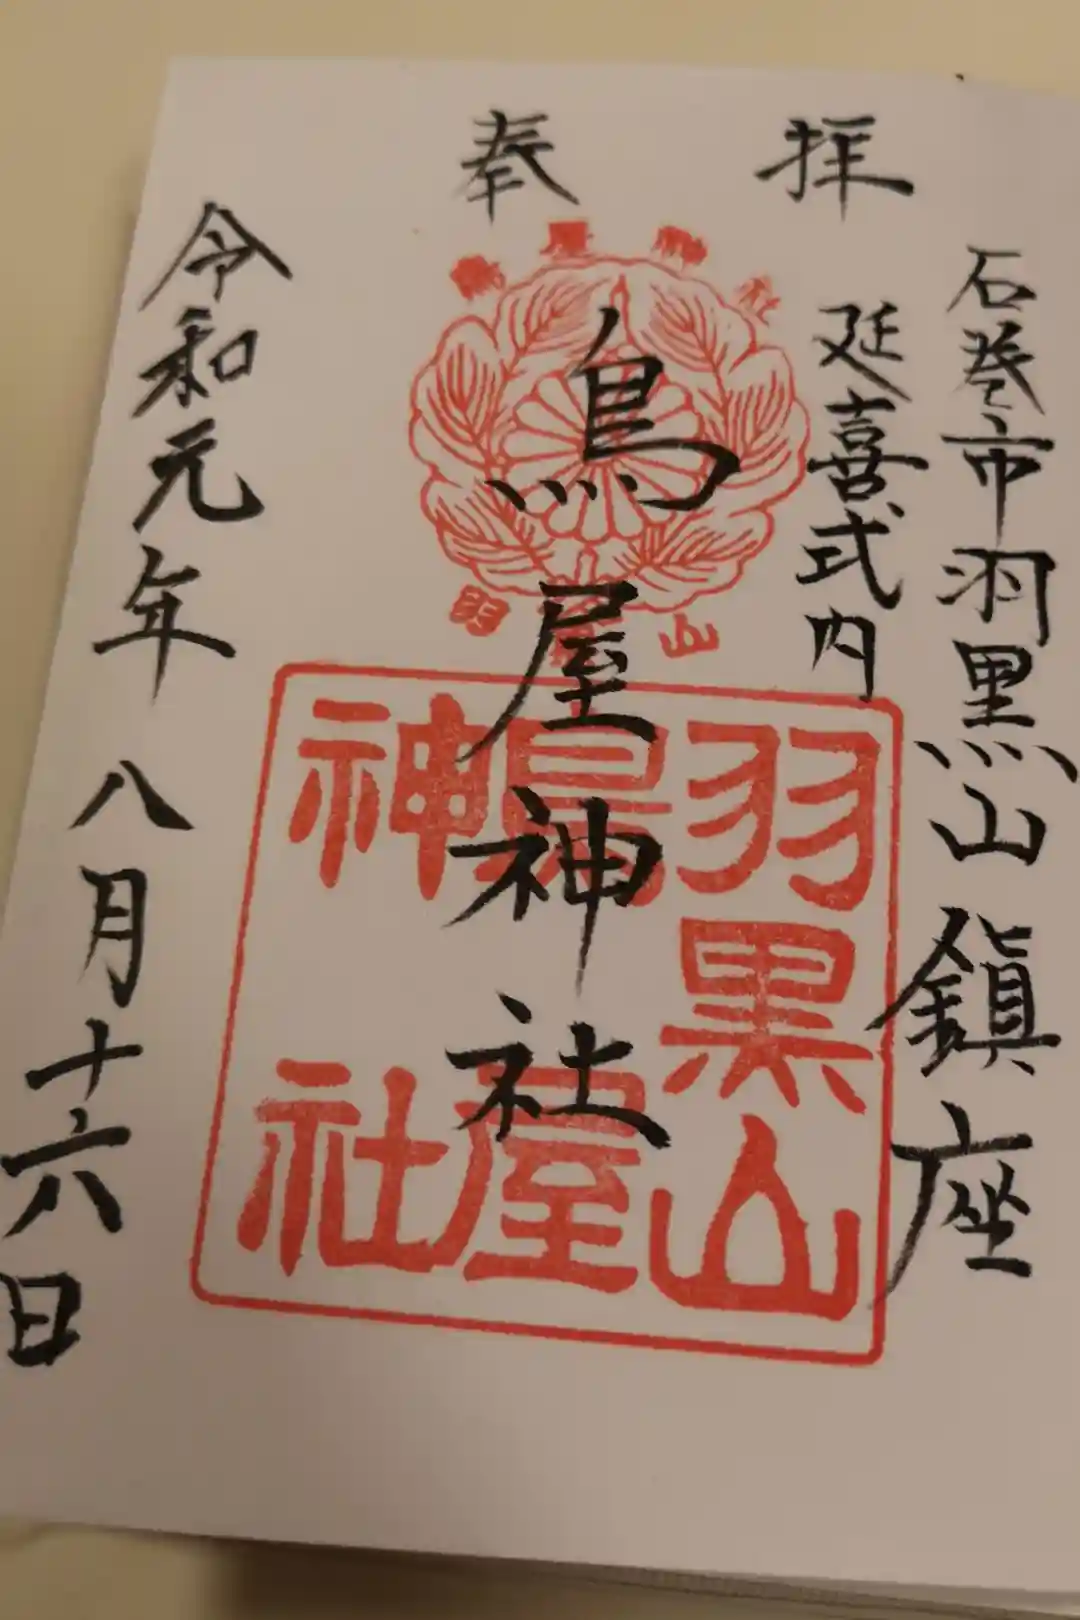 奉拝
石巻市羽黒山鎮座
延喜式内
鳥屋神社
令和元年八月十六日
鳥屋神社
羽黒山
羽黒山
鳥屋
神社